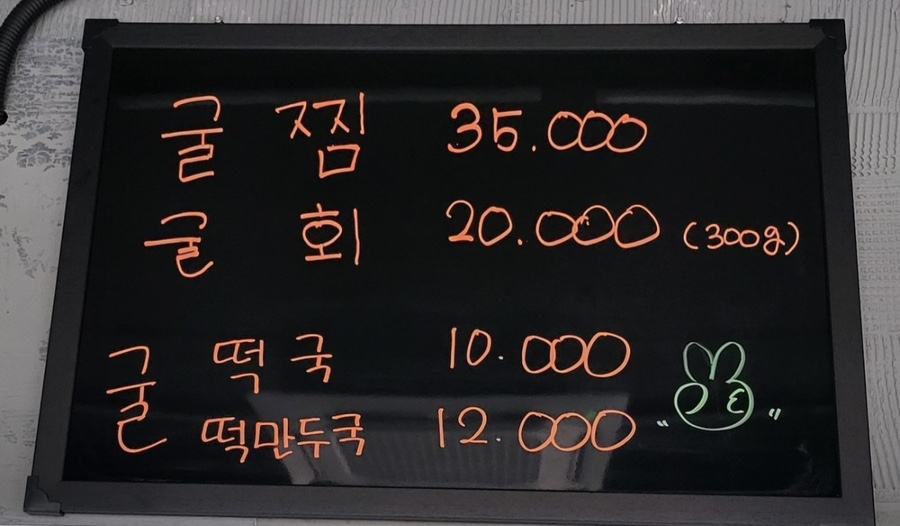 굴 찜 35.000
굴 회 20.000 (300g)
굴 떡국 10.000
떡만두국 12.000